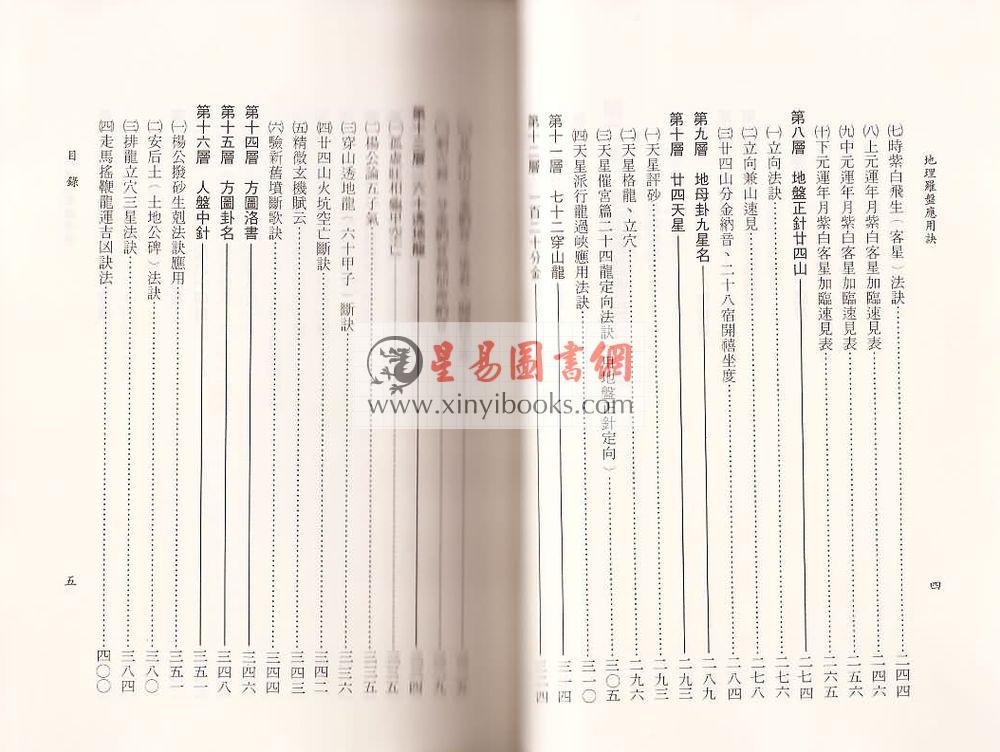 地理羅盤應用訣
㈦時紫白飛生（客星）法訣……二四四
㈧上元運年月紫白客星加臨速見表……二四六
㈨中元運年月紫白客星加臨速見表……二五五
㈩下元運年月紫白客星加臨速見表……二六五
第八層　地盤正針廿四山——二七四
㈠立向法訣……二七六
㈡立向兼山速見……二七八
㈢廿四山分金納音、二十八宿開禧坐度……二八四
第九層　地母卦九星名——二八九
第十層　廿四天星——二九三
㈠天星評砂……二九三
㈡天星格龍、立穴……二九六
㈢天星催宮篇二十四龍定向法訣（用地盤正針定向）……三〇五
㈣天星派行龍過峽應用法訣……三一〇
第十一層　七十二穿山龍——三一四
第十二層　一百二十分金
四
㈡楊公論五子氣
㈢穿山透地龍（六十甲子）斷訣……三三六
㈣廿四山火坑空亡斷訣……三四二
㈤精微玄機賦云……三四三
㈥驗新舊墳斷歌訣……三四五
第十四層　方圖洛書——三四六
第十五層　方圖卦名——三四八
第十六層　人盤中針——三五一
㈠楊公撥砂生剋法訣應用……三五一
㈡安后土（土地公碑）法訣……三八〇
㈢排龍立穴三星法訣……三八四
㈣走馬搖鞭龍運吉凶訣法……四〇〇
目錄
五
星易圖書網
www.xinyibooks.com